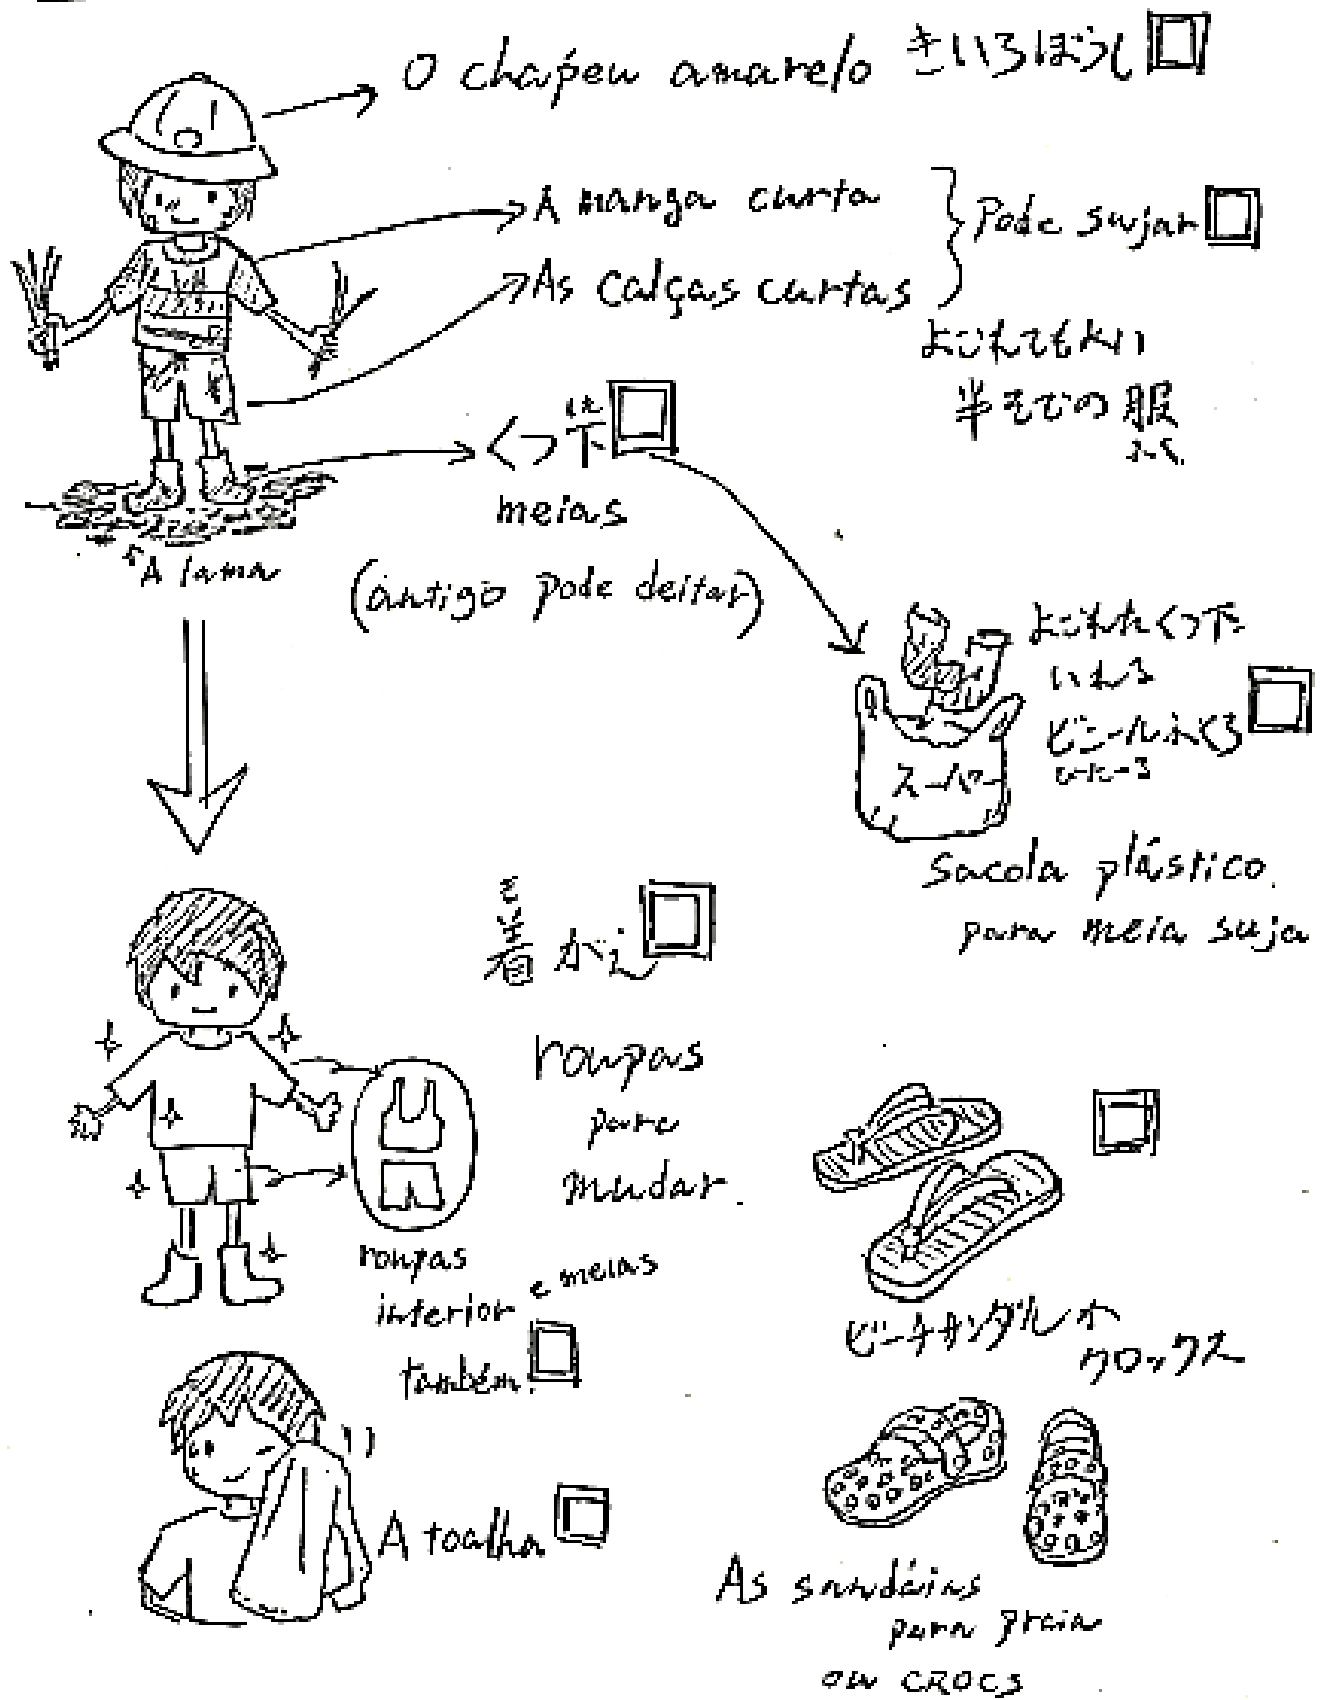 O chápeu amarelo きいろぼうし
A manga curta
As calças curtas
Pode sujar
よごれてもよい
半そでの服
ふく
くつ下
meias
(antigo pode deitar)
A lama
よごれたくつ下
いれる
ビニールぶくろ
スーパー
sacola plástico
para meia suja
着がえ
roupas
para
mudar.
roupas
interior e meias
também.
ビーチサンダルか
クロックス
A toalha
As sandáias
para praia
ou CROCS